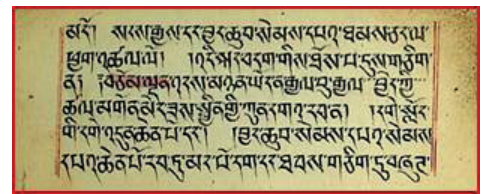 མདོ། སངས་རྒྱས་དང་བྱང་ཆུབ་སེམས་དཔའ་ཐམས་ཅད་ལ་
ཕྱག་འཚལ་ལོ། །འདི་སྐད་བདག་གིས་ཐོས་པ་དུས་གཅིག་
ན། །བཅོམ་ལྡན་འདས་མཉན་ཡོད་ན་རྒྱལ་བུ་རྒྱལ་བྱེད་ཀྱི་
ཚལ་མགོན་མེད་ཟས་སྦྱིན་གྱི་ཀུན་དགའ་ར་བ་ན། །དགེ་སློང་
གི་དགེ་འདུན་ཆེན་པོ་དང་། །བྱང་ཆུབ་སེམས་དཔའ་སེམས་
དཔའ་ཆེན་པོ་རབ་ཏུ་མང་པོ་དག་དང་ཐབས་གཅིག་ཏུ་